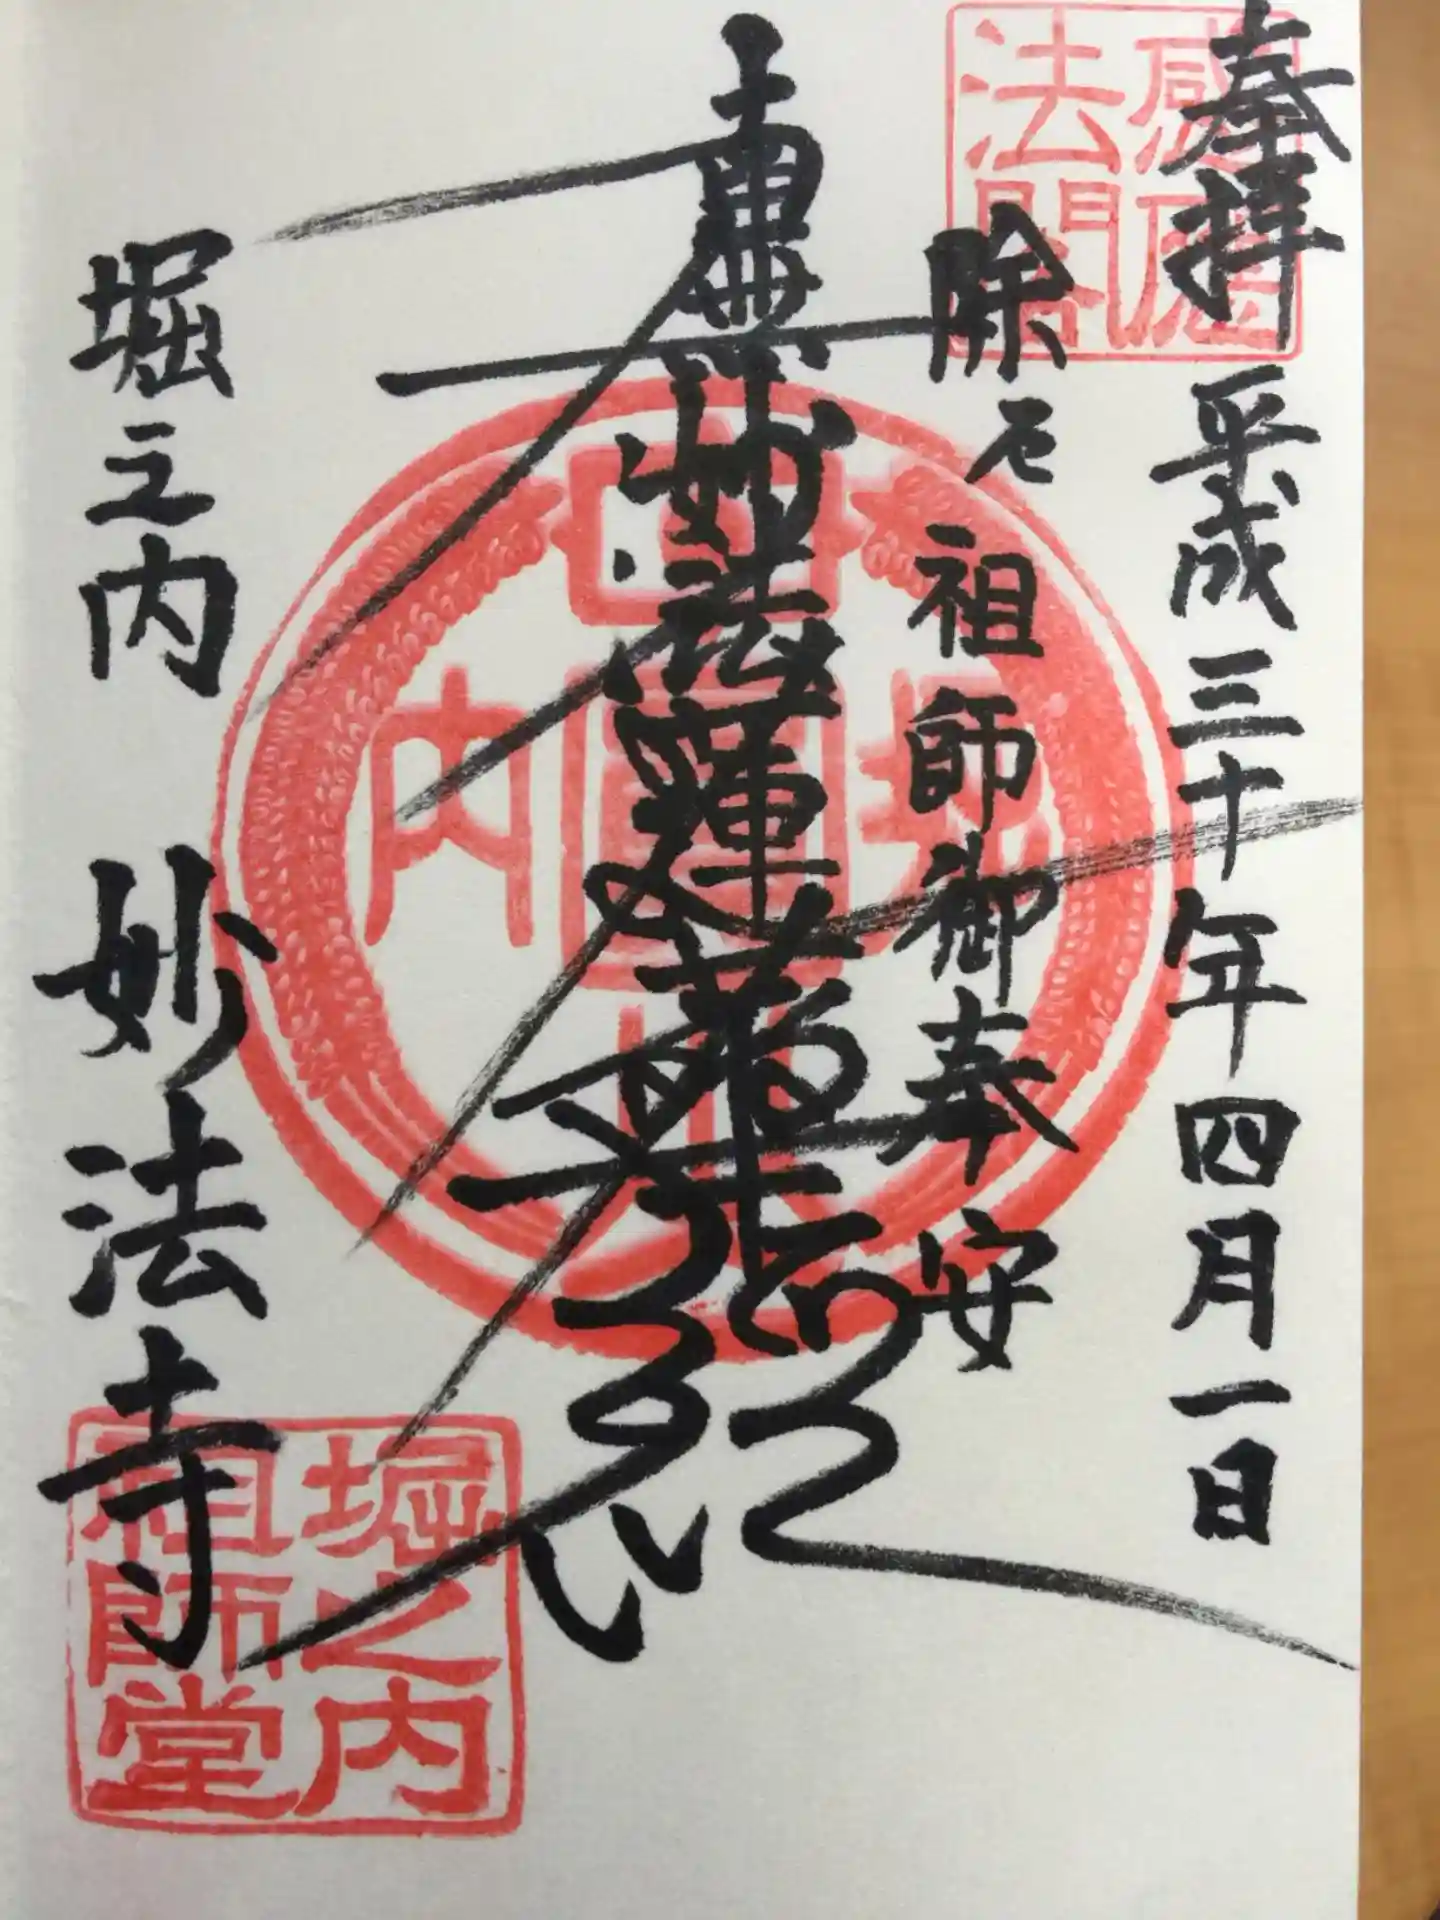 奉拝 平成三十年四月一日
除厄 祖師御奉安
南無妙法蓮華経
堀之内 妙法寺
感應
法閣
堀
山
内
堀之内
祖師堂